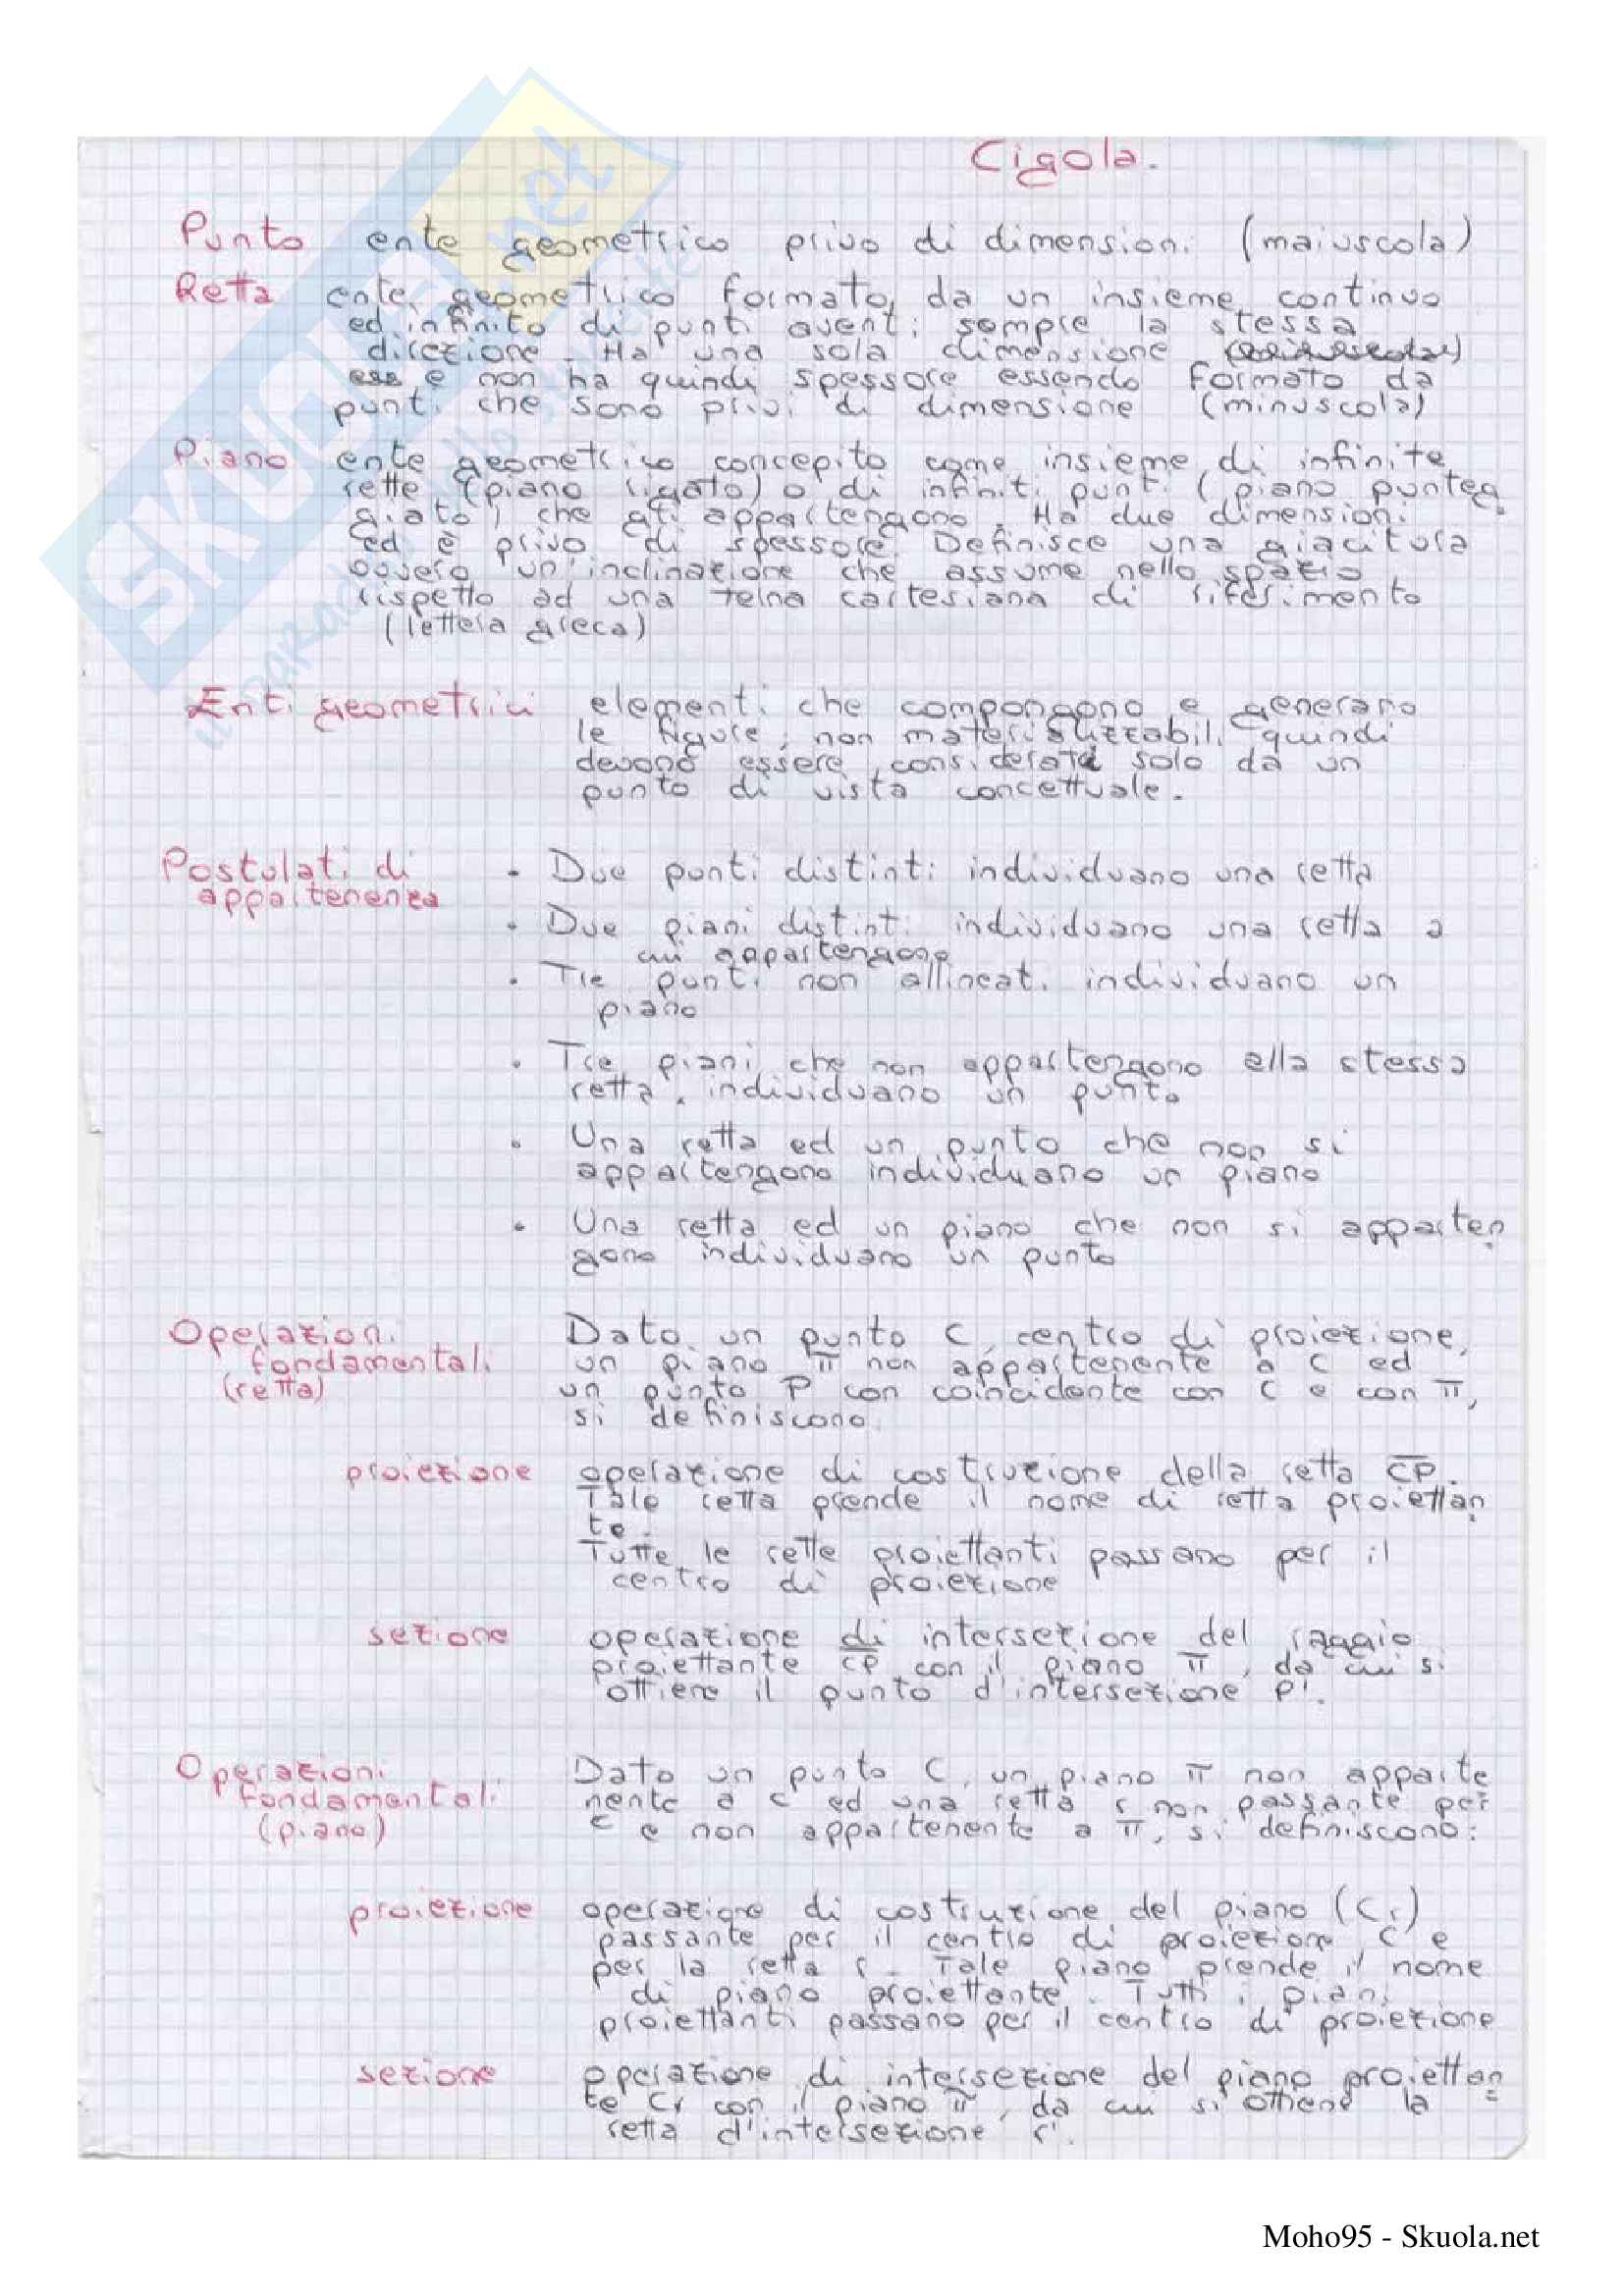 Cigola.
Punto ente geometrico privo di dimensioni (maiuscola)
Retta ente geometrico formato da un insieme continuo
ed infinito di punti aventi sempre la stessa
direzione. Ha una sola dimensione
e non ha quindi spessore essendo formato da
punti che sono privi di dimensione (minuscola)
Piano ente geometrico concepito come insieme di infinite
rette (piano rigato) o di infiniti punti (piano punteg
giato) che gli appartengono. Ha due dimensioni
ed è privo di spessore. Definisce una giacitura
ovvero un'inclinazione che assume nello spazio
rispetto ad una terna cartesiana di riferimento
(lettera greca)
Enti geometrici elementi che compongono e generano
le figure, non materializzabili quindi
devono essere considerati solo da un
punto di vista concettuale.
Postulati di • Due punti distinti individuano una retta
appartenenza
• Due piani distinti individuano una retta a
cui appartengono
• Tre punti non allineati individuano un
piano
• Tre piani che non appartengono alla stessa
retta, individuano un punto
• Una retta ed un punto che non si
appartengono individuano un piano
• Una retta ed un piano che non si apparten
gono individuano un punto
Operazioni Dato un punto C, centro di proiezione,
fondamentali un piano π non appartenente a C ed
(retta) un punto P con coincidente con C e con π,
si definiscono
proiezione operazione di costruzione della retta CP.
Tale retta prende il nome di retta proiettan
te.
Tutte le rette proiettanti passano per il
centro di proiezione
sezione operazione di intersezione del raggio
proiettante CP con il piano π, da cui si
ottiene il punto d'intersezione P'.
Operazioni Dato un punto C, un piano π non apparte
fondamentali nente a C ed una retta r non passante per
(piano) C e non appartenente a π, si definiscono:
proiezione operazione di costruzione del piano (Cr)
passante per il centro di proiezione C e
per la retta r. Tale piano prende il nome
di piano proiettante. Tutti i piani
proiettanti passano per il centro di proiezione
sezione operazione di intersezione del piano proiettan
te Cr con il piano π, da cui si ottiene la
retta d'intersezione r'.
SKUOLA.net
Moho95 - Skuola.net